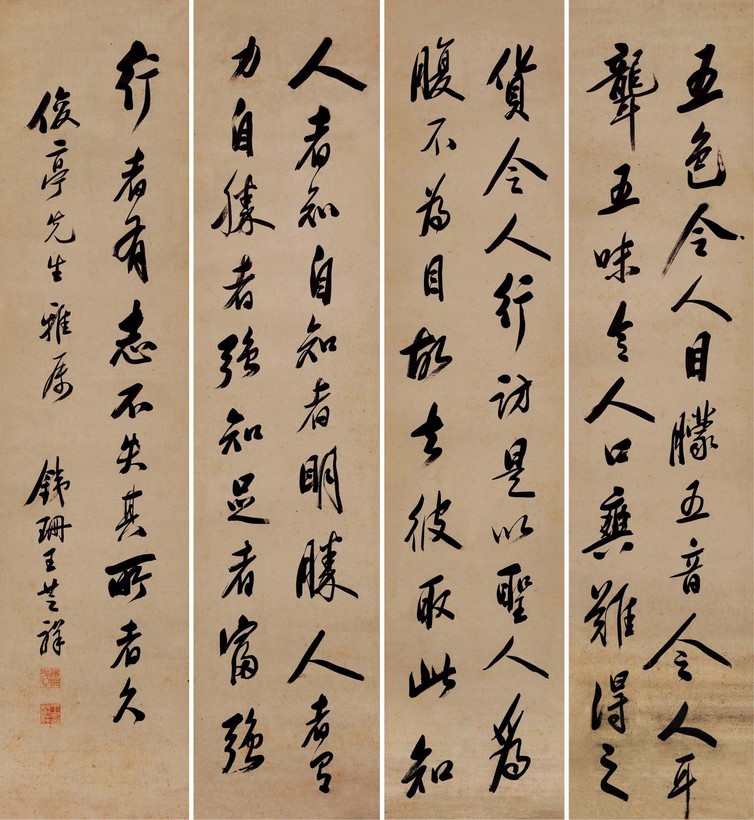 五色令人目矇五音令人耳
聾五味令人口爽難得之
貨令人行訪是以聖人爲
腹不為目故去彼取此知
人者知自知者明勝人者有
力自勝者強知足者富強
行者有志不失其所者久
俊亭先生雅属 銕珊王芝祥